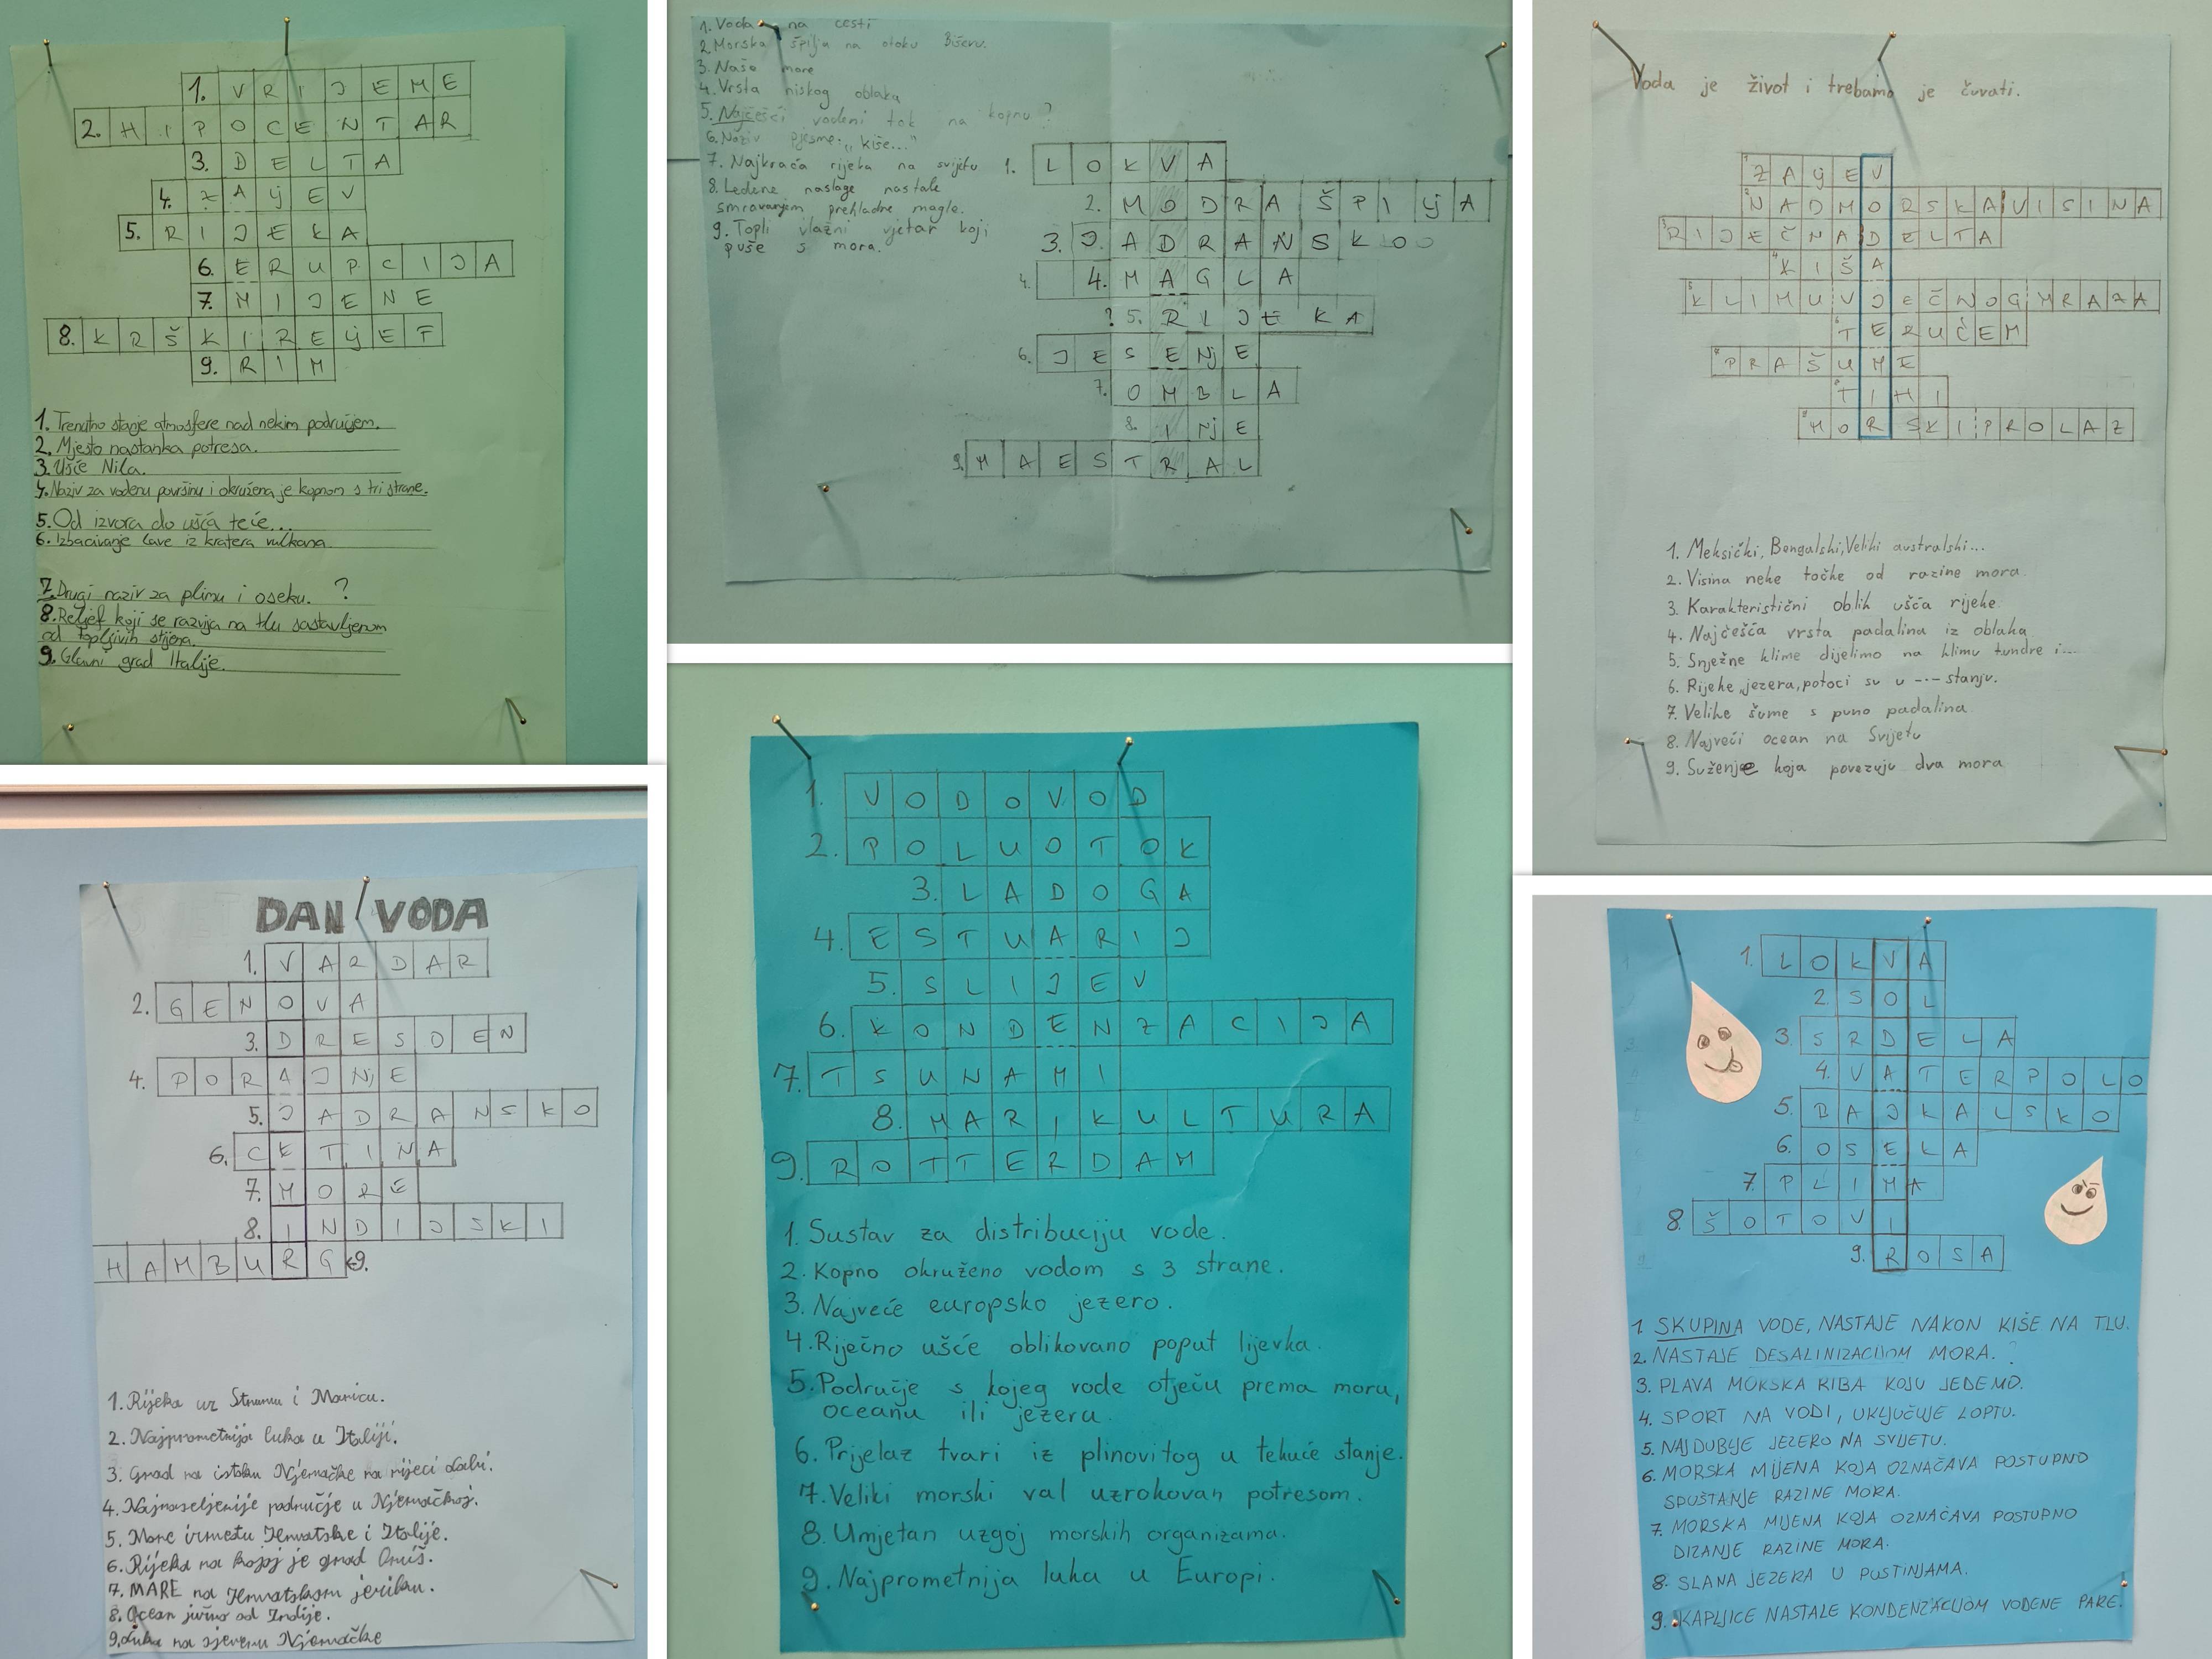 1. VRIJEME
2. HIPOCENTAR
3. DELTA
4. ZALJEV
5. RIJEKA
6. ERUPCIJA
7. MIJENE
8. KRŠKIRELJEF
9. RIM
1. Trenutno stanje atmosfere nad nekim područjem.
2. Mjesto nastanka potresa.
3. Ušće Nila.
4. Naziv za vodenu površinu i okružena je kopnom s tri strane.
5. Od izvora do ušća teče...
6. Izbacivanje lave iz kratera vulkana.
7. Drugi naziv za plimu i oseku. ?
8. Reljef koji se razvija na tlu sastavljenom
od topljivih stijena.
9. Glavni grad Italije.
1. Voda na cesti
2. Morska špilja na otoku Biševu.
3. Naše more
4. Vrsta niskog oblaka
5. Najčešći vodeni tok na kopnu?
6. Naziv pjesme: „ kiše..."
7. Najkraća rijeka na svijetu
8. Ledene naslage nastale
smrzavanjem prehladne magle.
9. Topli vlažni vjetar koji
puše s mora.
1. LOKVA
2. MODRA ŠPILJA
3. JADRANSKO
4. 4. MAGLA
? 5. RIJEKA
6. JESENJE
7. OMBLA
8. INJE
9. MAESTRAL
Voda je život i trebamo je čuvati.
1 ZALJEV
2 NADMORSKAVISINA
3 RIJEČNADELTA
4 KIŠA
5 KLIMUVJEČNOGMRAZA
6 TEKUĆEM
7 PRAŠUME
8 TIHI
9 MORSKIPROLAZ
1. Meksički, Bengalski, Veliki australski...
2. Visina neke točke od razine mora.
3. Karakteristični oblik ušća rijeke.
4. Najčešća vrsta padalina iz oblaka
5. Snježne klime dijelimo na klimu tundre i...
6. Rijeke, jezera, potoci su u --- stanju.
7. Velike šume s puno padalina.
8. Najveći ocean na Svijetu
9. Suženje koja povezuju dva mora
DAN VODA
1. VARDAR
2. GENOVA
3. DRESDEN
4. PORAJNJE
5. JADRANSKO
6. CETINA
7. MORE
8. INDIJSKI
HAMBURG ←9.
1. Rijeka uz Strumu i Maricu.
2. Najprometnija luka u Italiji.
3. Grad na istoku Njemačke na rijeci Labi.
4. Najnaseljenije područje u Njemačkoj.
5. More između Hrvatske i Italije.
6. Rijeka na kojoj je grad Omiš.
7. MARE na Hrvatskom jeziku.
8. Ocean južno od Indije.
9. Luka na sjeveru Njemačke
1. VODOVOD
2. POLUOTOK
3. LADOGA
4. ESTUARIJ
5. SLIJEV
6. KONDENZACIJA
7. TSUNAMI
8. MARIKULTURA
9. ROTTERDAM
1. Sustav za distribuciju vode.
2. Kopno okruženo vodom s 3 strane.
3. Najveće europsko jezero.
4. Riječno ušće oblikovano poput lijevka.
5. Područje s kojeg vode otječu prema moru,
oceanu ili jezeru.
6. Prijelaz tvari iz plinovitog u tekuće stanje.
7. Veliki morski val uzrokovan potresom.
8. Umjetan uzgoj morskih organizama.
9. Najprometnija luka u Europi.
1. LOKVA
2. SOL
3. SRDELA
4. VATERPOLO
5. BAJKALSKO
6. OSEKA
7. PLIMA
8. ŠOTOVI
9. ROSA
1. SKUPINA VODE, NASTAJE NAKON KIŠE NA TLU.
2. NASTAJE DESALINIZACIJOM MORA. ?
3. PLAVA MORSKA RIBA KOJU JEDEMO.
4. SPORT NA VODI, UKLJUČUJE LOPTU.
5. NAJDUBLJE JEZERO NA SVIJETU.
6. MORSKA MIJENA KOJA OZNAČAVA POSTUPNO
SPUŠTANJE RAZINE MORA.
7. MORSKA MIJENA KOJA OZNAČAVA POSTUPNO
DIZANJE RAZINE MORA.
8. SLANA JEZERA U PUSTINJAMA.
9. KAPLJICE NASTALE KONDENZACIJOM VODENE PARE.